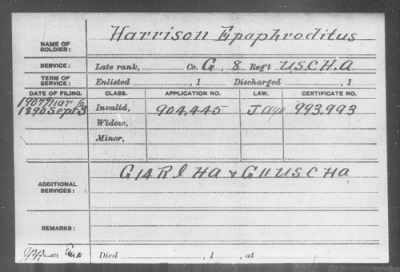 NAME OF SOLDIER: Harrison Epaphroditus
SERVICE: Late rank, Co. G, 8 Reg't U.S.C.H.A
TERM OF SERVICE: Enlisted , 1 Discharged , 1
DATE OF FILING. CLASS. APPLICATION NO. LAW. CERTIFICATE NO.
1907 Mar
1890 Sept 3 Invalid, 904,445 993,993
Widow,
Minor,
ADDITIONAL SERVICES: G 14 R I HA & G 11 U S C HA
REMARKS:
Died , 1 , at